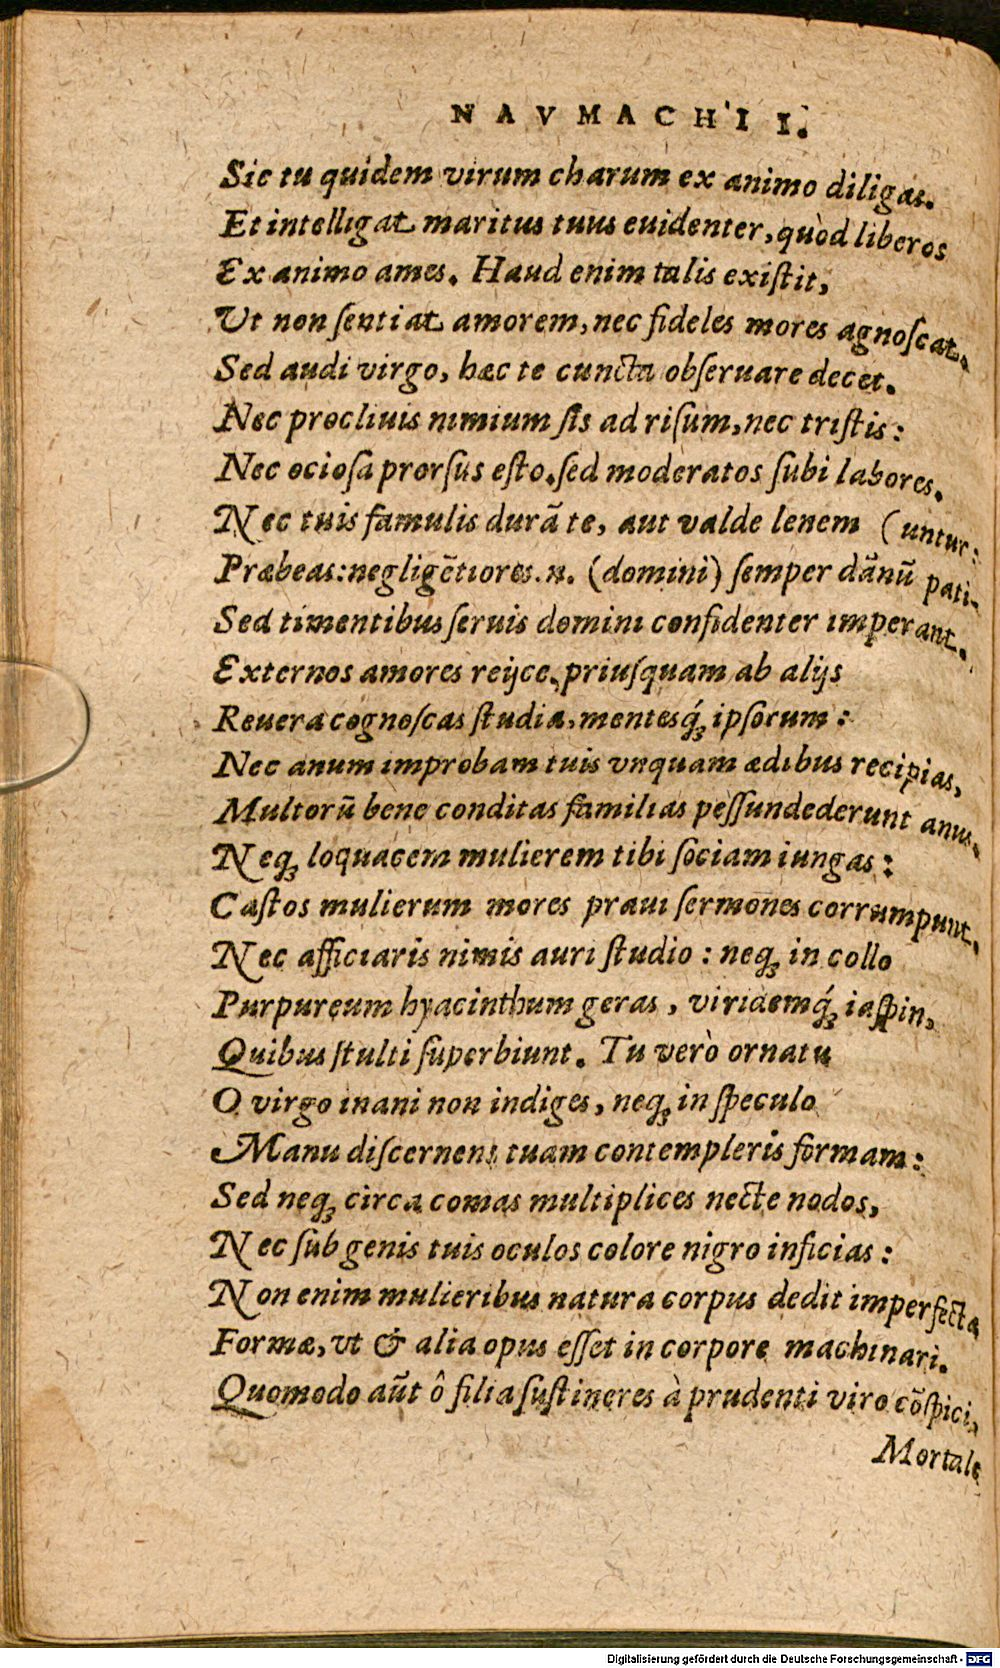 NAVMACHII.
Sic tu quidem virum charum ex animo diligas.
Et intelligat maritus tuus euidenter, quòd liberos
Ex animo ames. Haud enim talis existit,
Ut non sentiat amorem, nec fideles mores agnoscat.
Sed audi virgo, hæc te cuncta obseruare decet.
Nec procliuis nimium sis ad risum, nec tristis:
Nec ociosa prorsus esto. sed moderatos subi labores.
Nec tuis famulis durā te, aut valde lenem (untur:
Præbeas: negligētiores .n. (domini) semper dānū pati-
Sed timentibus seruis domini confidenter imperant.
Externos amores reijce, priusquam ab alijs
Reuera cognoscas studia, mentesq́; ipsorum:
Nec anum improbam tuis vnquam ædibus recipias,
Multorū bene conditas familias pessundederunt anus.
Neq; loquacem mulierem tibi sociam iungas:
Castos mulierum mores praui sermones corrumpunt.
Nec afficiaris nimis auri studio: neq; in collo
Purpureum hyacinthum geras, viridemq́; iaspin,
Quibus stulti superbiunt. Tu verò ornatu
O virgo inani non indiges, neq; in speculo
Manu discernens tuam contempleris formam:
Sed neq; circa comas multiplices necte nodos,
Nec sub genis tuis oculos colore nigro inficias:
Non enim mulieribus natura corpus dedit imperfectæ
Formæ, vt & alia opus esset in corpore machinari.
Quomodo aūt ô filia sustineres à prudenti viro cōspici,
Mortale
Digitalisierung gefördert durch die Deutsche Forschungsgemeinschaft - DFG